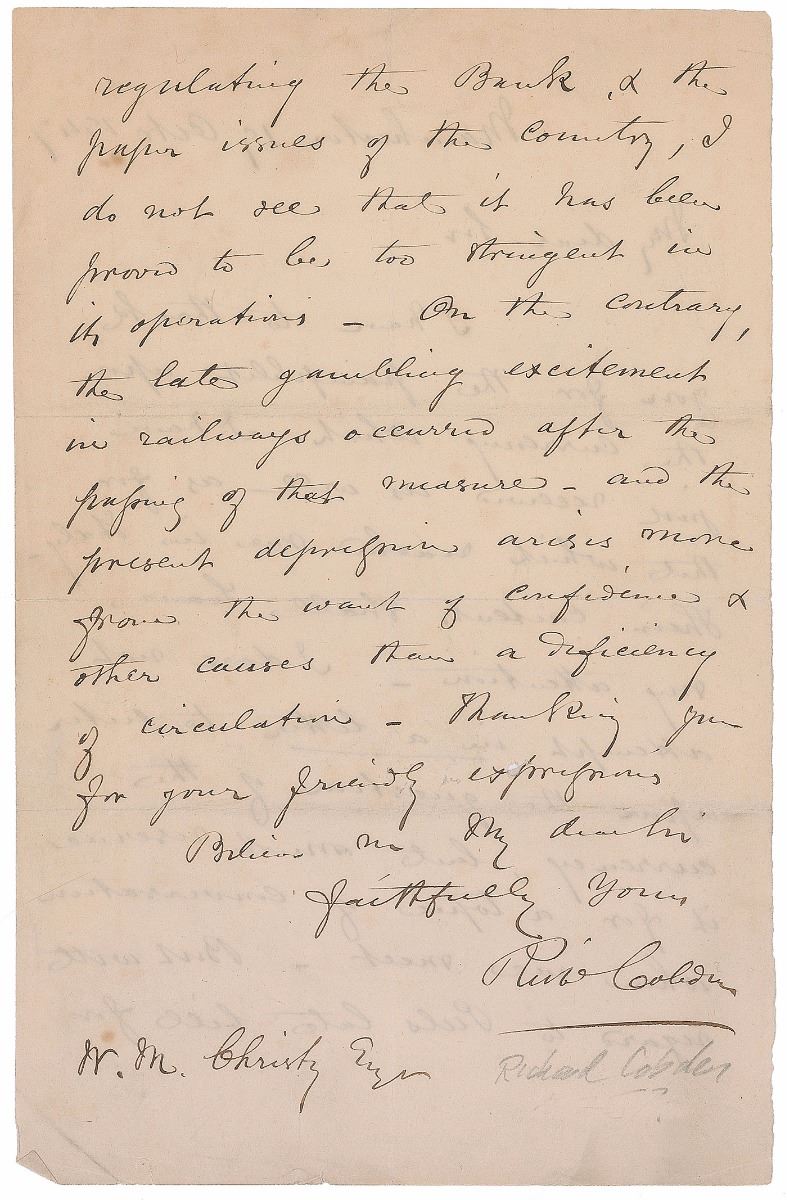 regulating the Bank, & the
paper issues of the Country, I
do not see that it has been
proved to be too stringent in
its operations — On the contrary,
the late gambling excitement
in railways occurred after the
passing of that measure — and the
present depression arises more
from the want of confidence &
other causes than a deficiency
of circulation — Thanking you
for your friendly expressions
Believe me My dear Sir
faithfully Yours
Richd Cobden
W. M. Christy Esqr
Richard Cobden